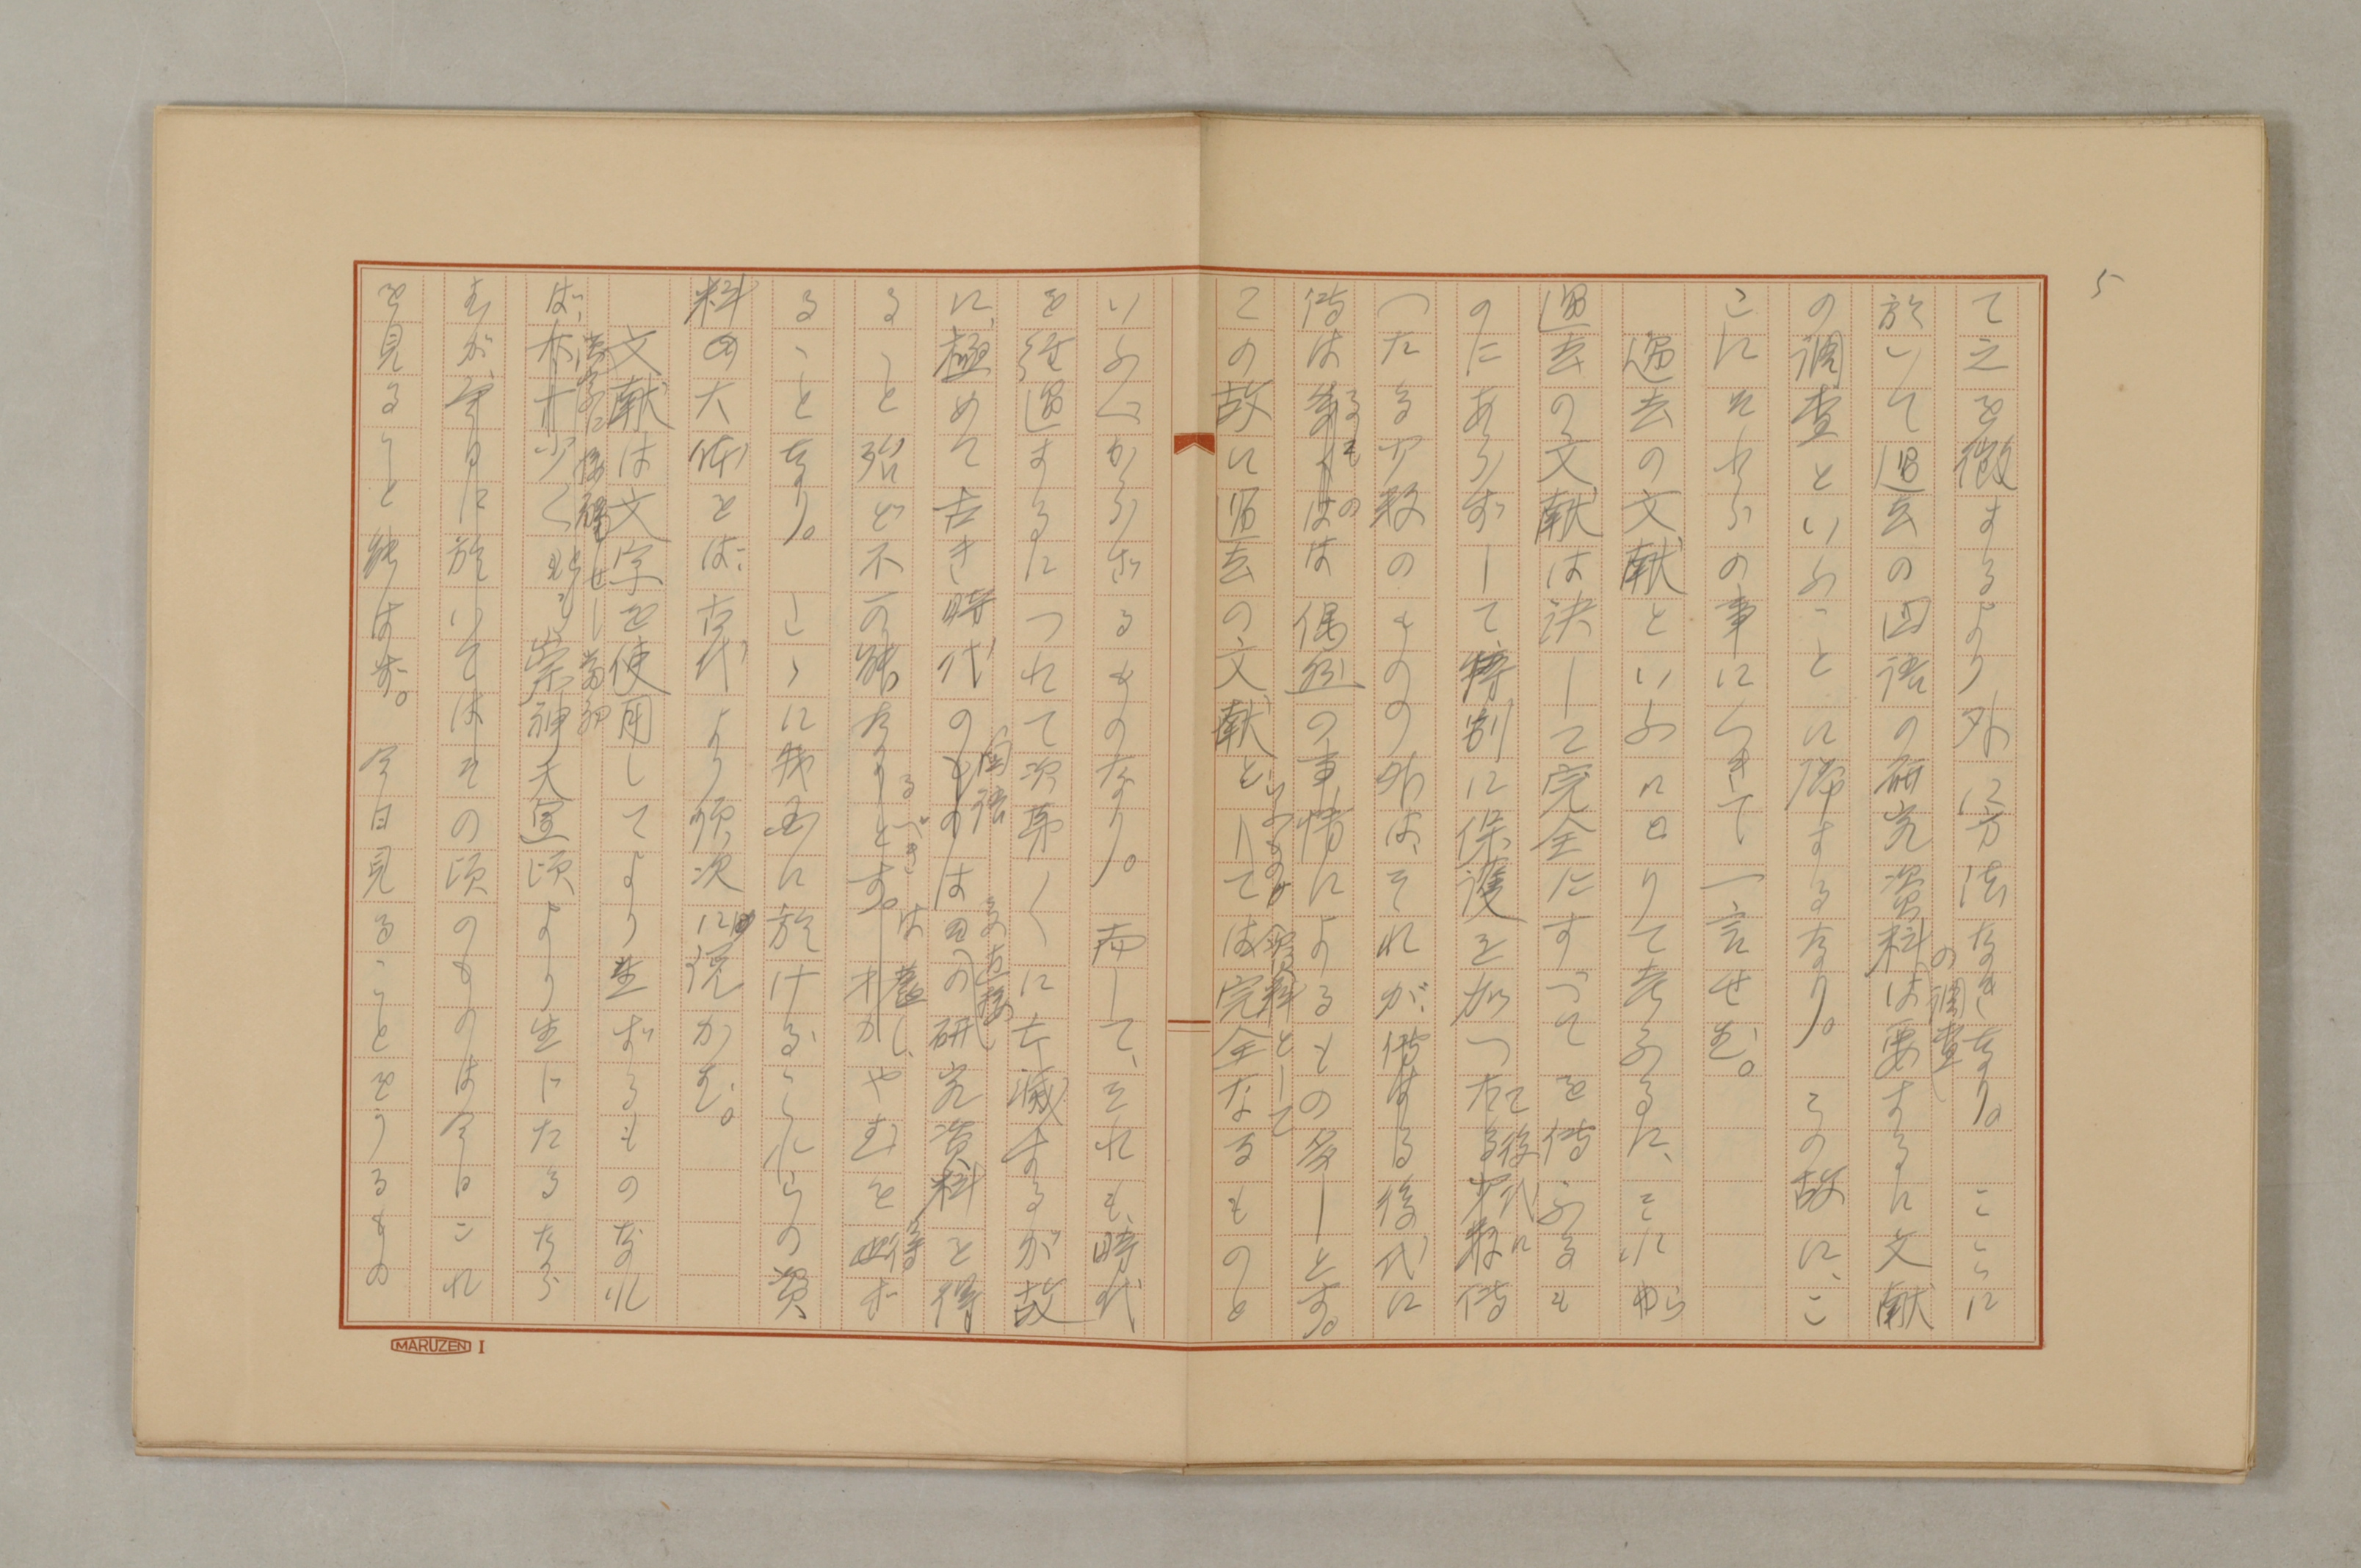 5
て之を徴するより外に方法なきなり。ここに
於いて過去の国語の研究資料の調査は要するに文献
の調査といふことに帰するなり。この故に、こ
こにそれらの事につきて一言せむ。
過去の文献といふにとりて考ふるに、それら
過去の文献は決して完全にすべてを伝ふるも
のにあらずして特別に保護を加へて後代に伝
へたる少数のものの外は、それが、後代に
伝はるものは偶然の事情によるもの多しとす。
この故に過去の文献といふものは資料としては完全なるものと
いふべからざるものなり。而して、それも、時代
を経過するにつれて次第々々に亡滅するが故
に、極めて古き時代の国語の直接の研究資料を得
ること殆ど不可能なるべきは蓋し、やむを得ざ
ることなり。ここに我国に於けるこれらの資
料の大体をば、古代より順次に説かむ。
文献は文字を使用してより生ずるものなれ
ば、漢字に接触せし当初
少くとも崇神天皇頃より生じたるなら
むが、今日に於いてはその頃のものは今日これ
を見ること能はず。今日見ることをうるもの
MARUZEN I